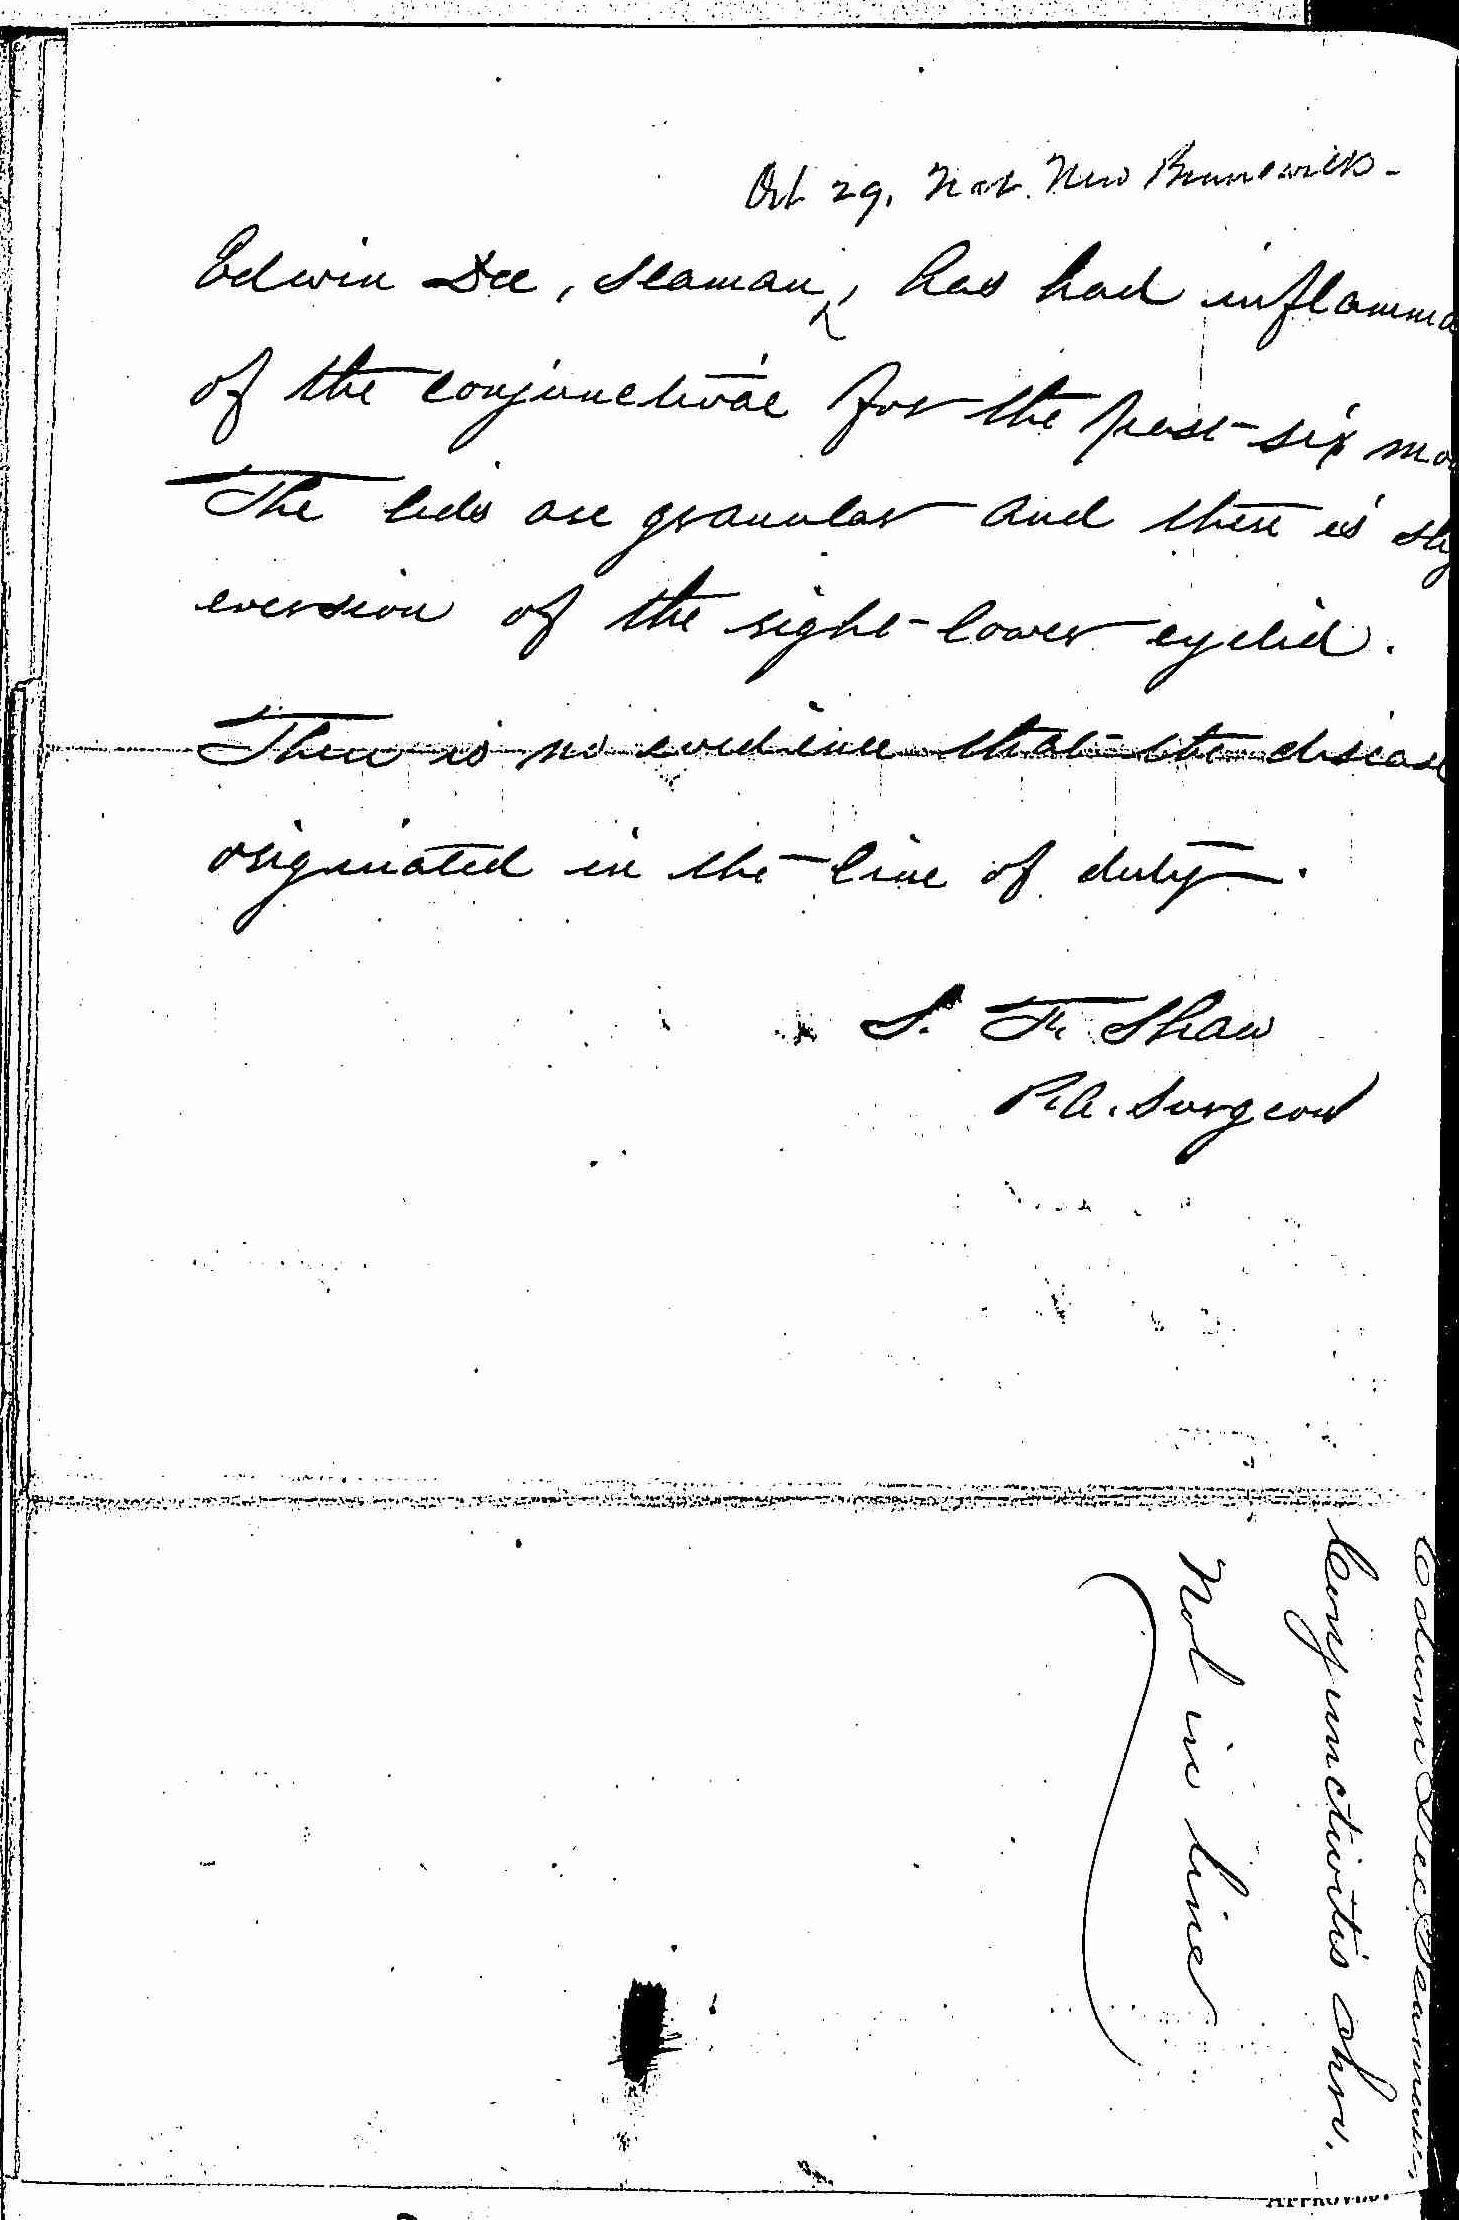 Oct 29. Nat. New Brunswick-
Edwin Dee, Seaman, has had inflamma
of the conjunctivae for the past six mo
The lids are granular and there is sli
eversion of the right lower eyelid.
There is no evidence that the disease
originated in the line of duty.
S. F. Shaw
P. A. Surgeon
Edwin Dee Seaman,
Conjunctivitis chro.
Not in line
APPROVED.